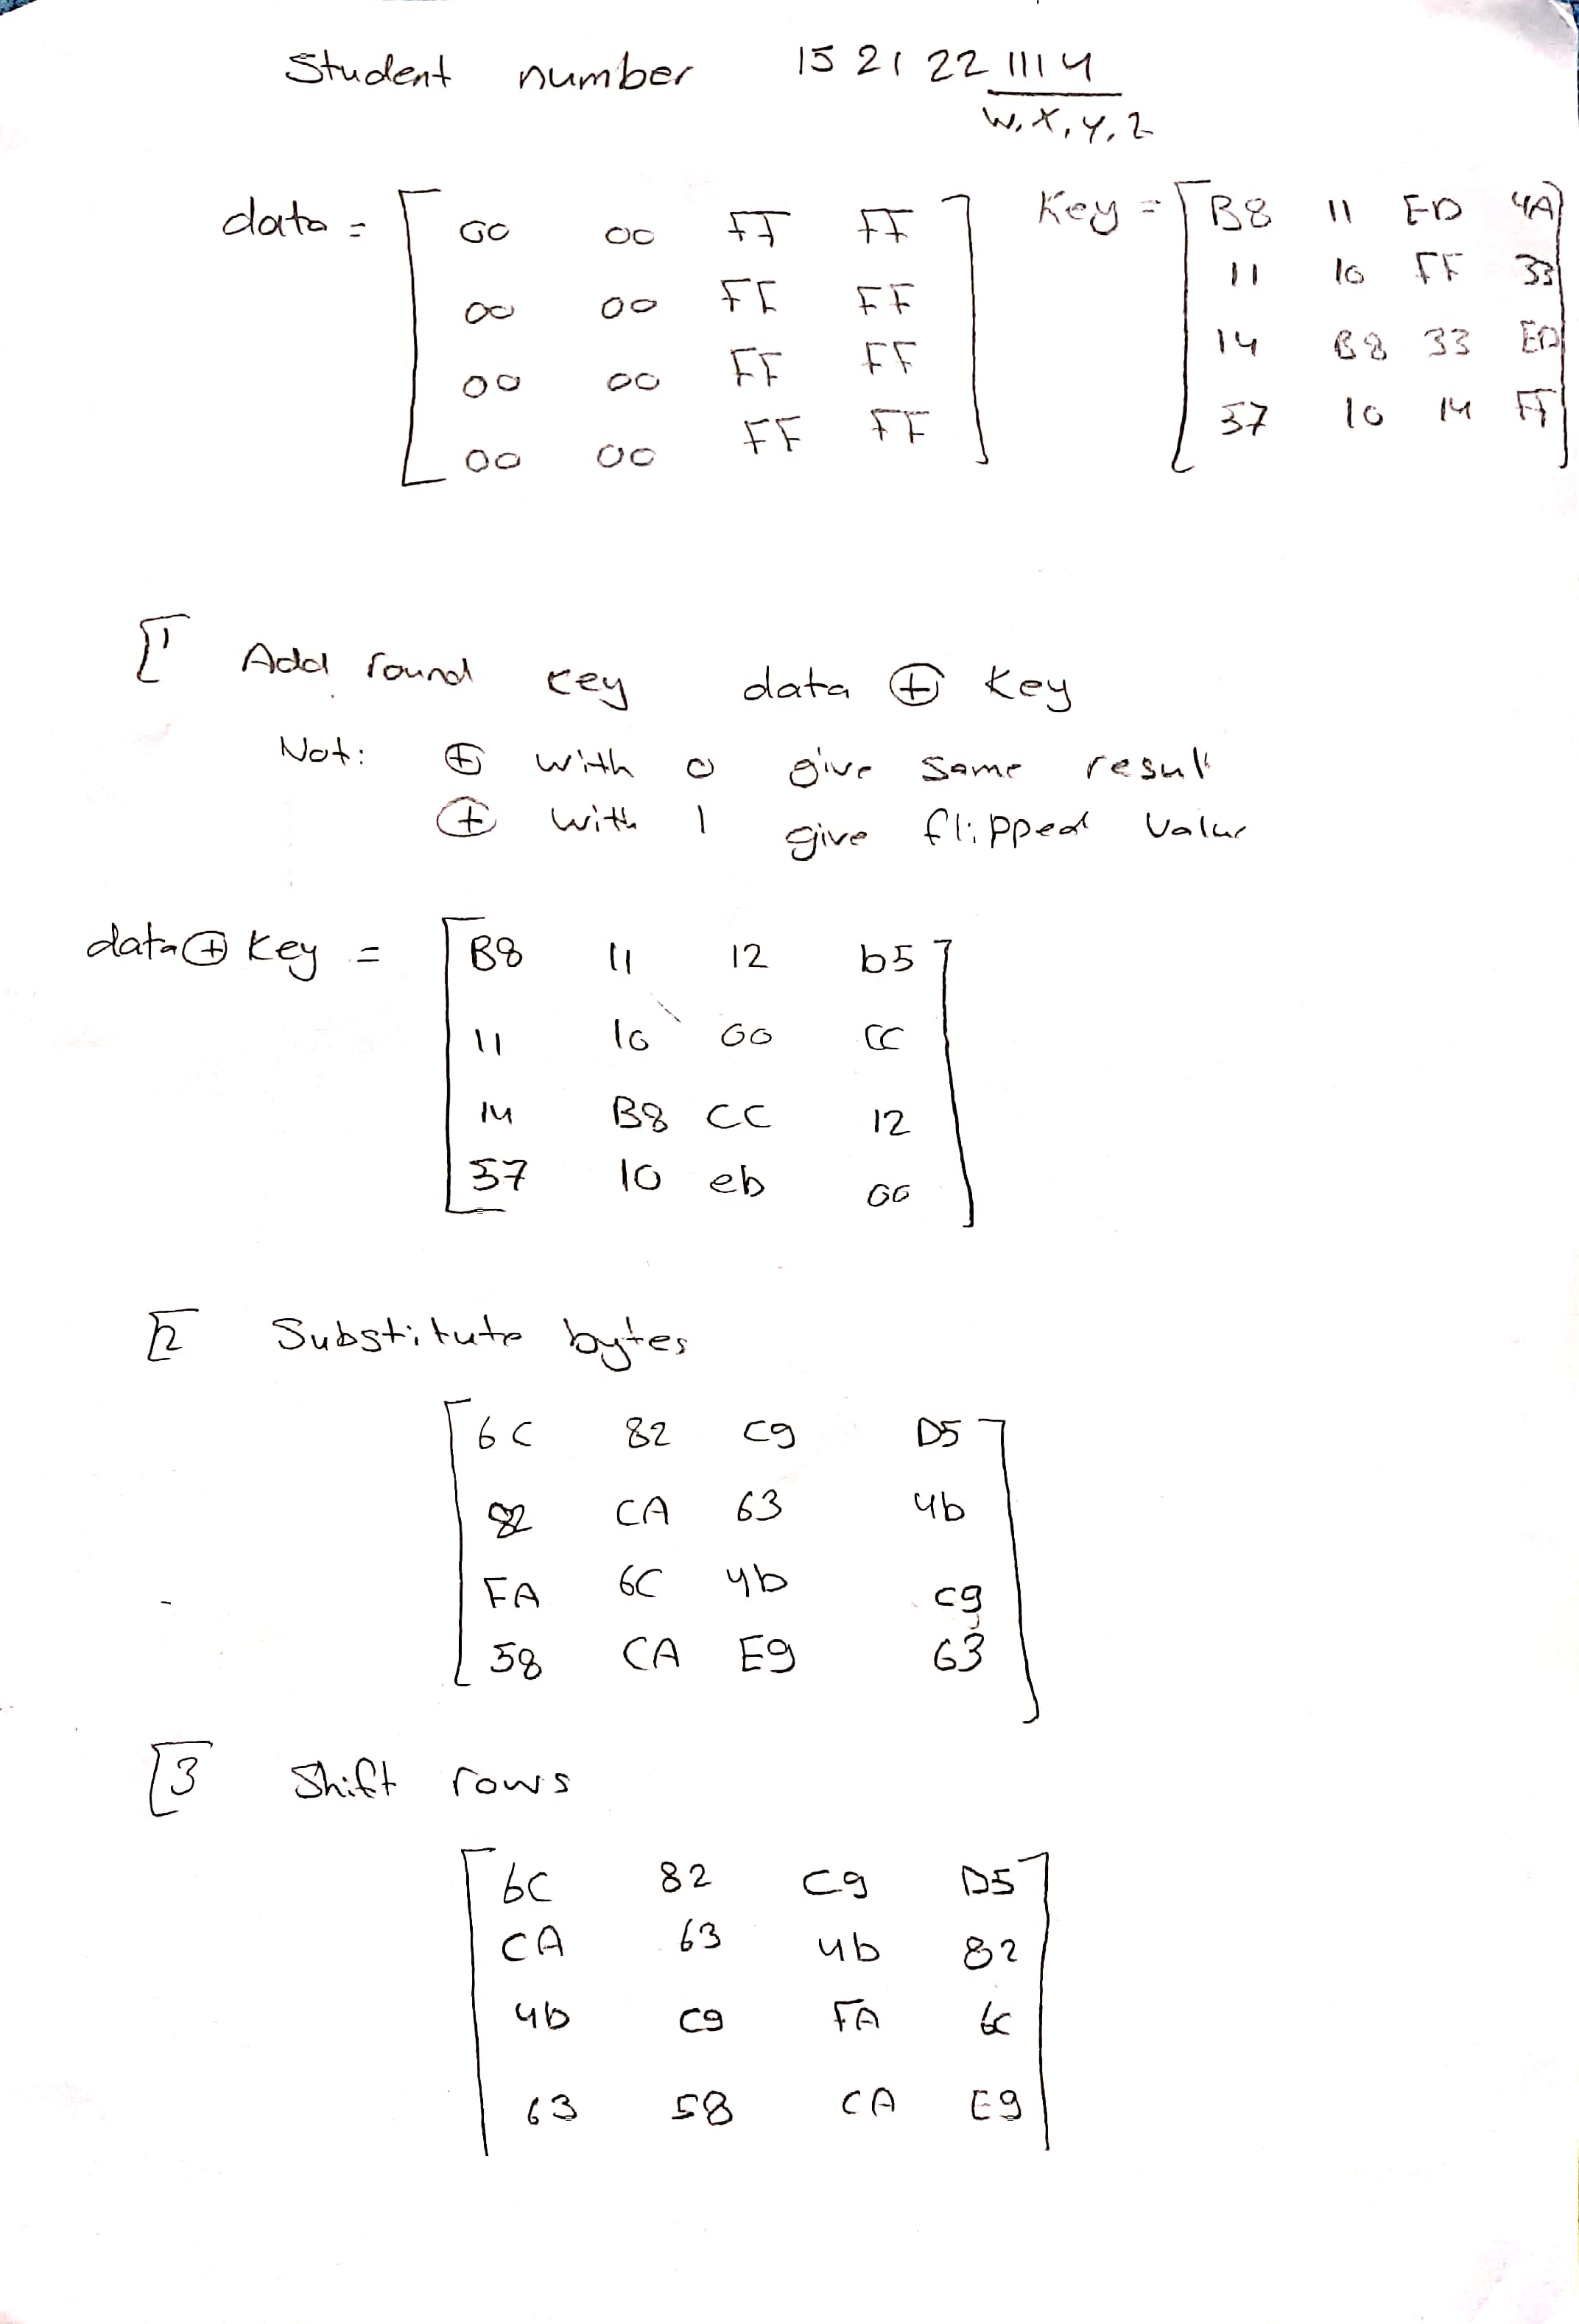 Student number 15 21 22 1114
W, X, Y, Z
data = 00 00 FF FF Key = B8 11 ED 4A
00 00 FF FF 11 10 FF 33
00 00 FF FF 14 B8 33 ED
00 00 FF FF 37 10 14 FF
1 Add round key data ⊕ Key
Not: ⊕ with 0 give same result
⊕ with 1 give flipped Value
data ⊕ Key = B8 11 12 b5
11 10 00 CC
14 B8 CC 12
57 10 eb 00
2 Substitute bytes
6C 82 C9 D5
82 CA 63 4b
FA 6C 4b C9
58 CA E9 63
3 Shift rows
6C 82 C9 D5
CA 63 4b 82
4b C9 FA 6C
63 58 CA E9